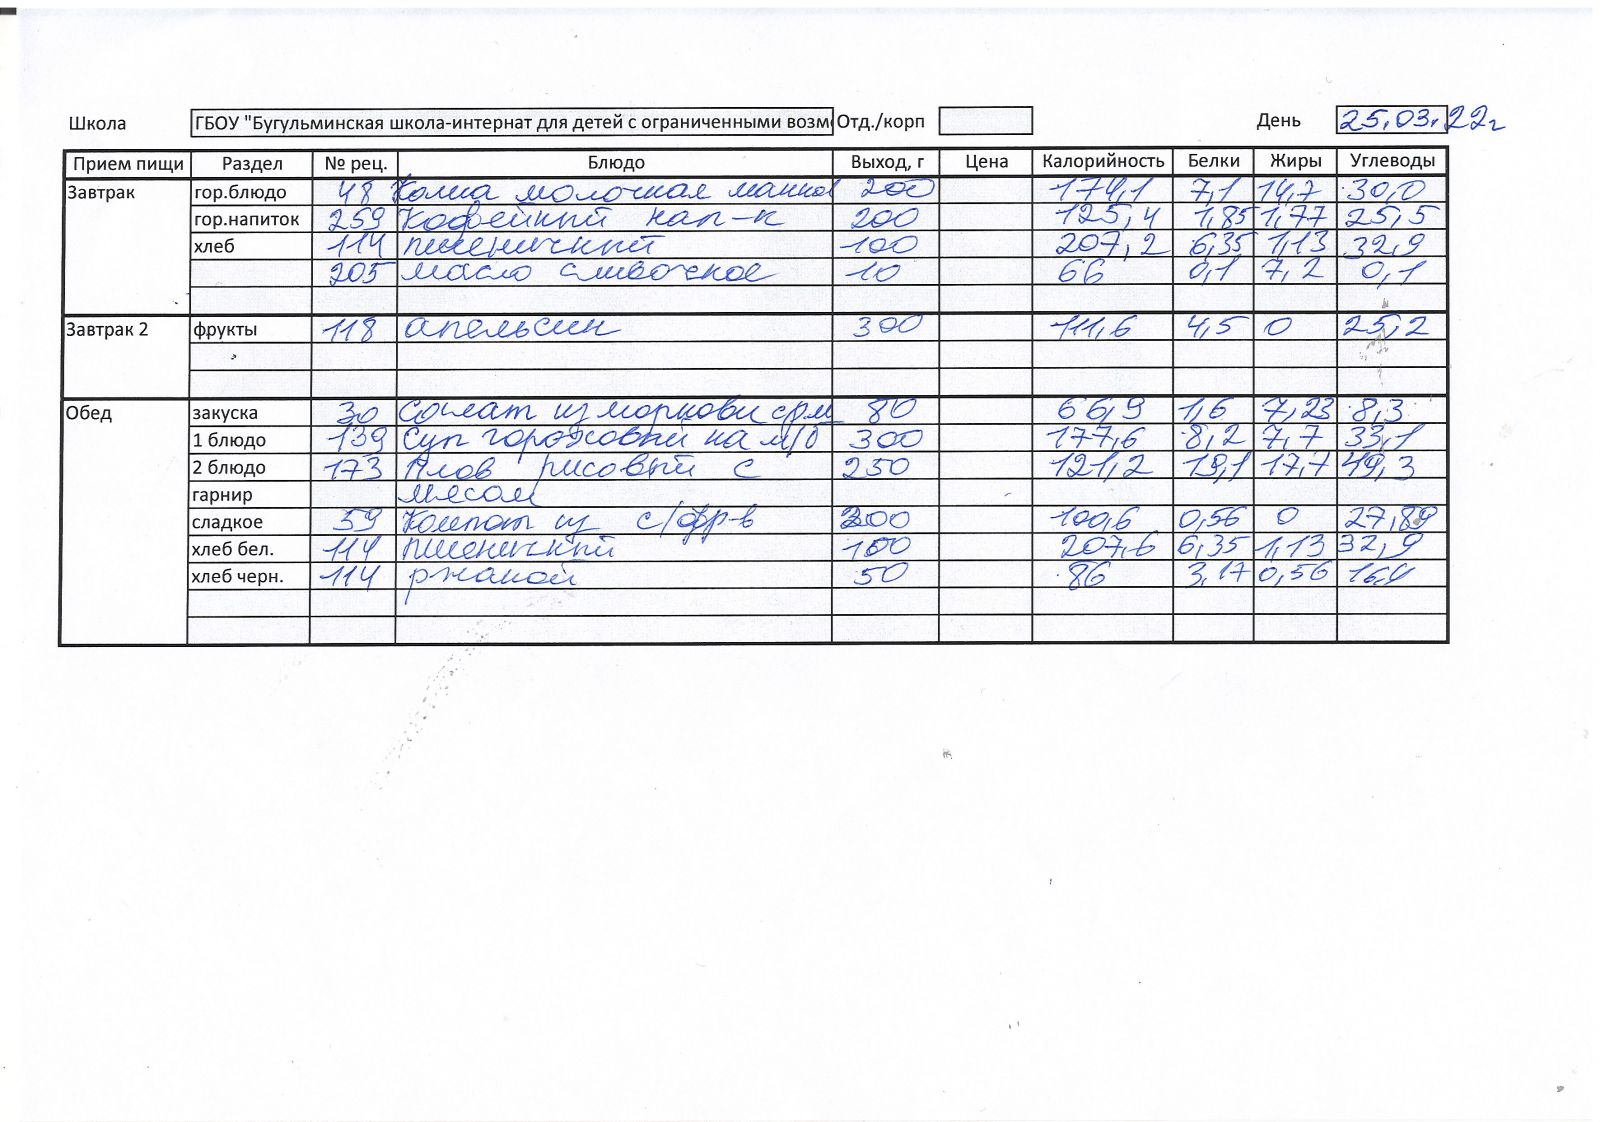 Школа ГБОУ "Бугульминская школа-интернат для детей с ограниченными возм Отд./корп День 25.03.22г
Прием пищи Раздел № рец. Блюдо Выход, г Цена Калорийность Белки Жиры Углеводы
Завтрак гор.блюдо 48 Каша молочная манная 200 174,1 7,1 14,7 30,0
гор.напиток 259 Кофейный нап-к 200 125,4 1,85 1,77 25,5
хлеб 114 пшеничный 100 207,2 6,35 1,13 32,9
205 масло сливочное 10 66 0,1 7,2 0,1
Завтрак 2 фрукты 118 апельсин 300 111,6 4,5 0 25,2
Обед закуска 30 Салат из моркови с р.м 80 66,9 1,6 7,23 8,3
1 блюдо 139 Суп гороховый на м/б 300 177,6 8,2 7,7 33,1
2 блюдо 173 Плов рисовый с 250 121,2 19,1 17,7 49,3
гарнир мясом
сладкое 59 Компот из с/фр-в 200 100,6 0,56 0 27,89
хлеб бел. 114 пшеничный 100 207,6 6,35 1,13 32,9
хлеб черн. 114 ржаной 50 86 3,17 0,56 16,4